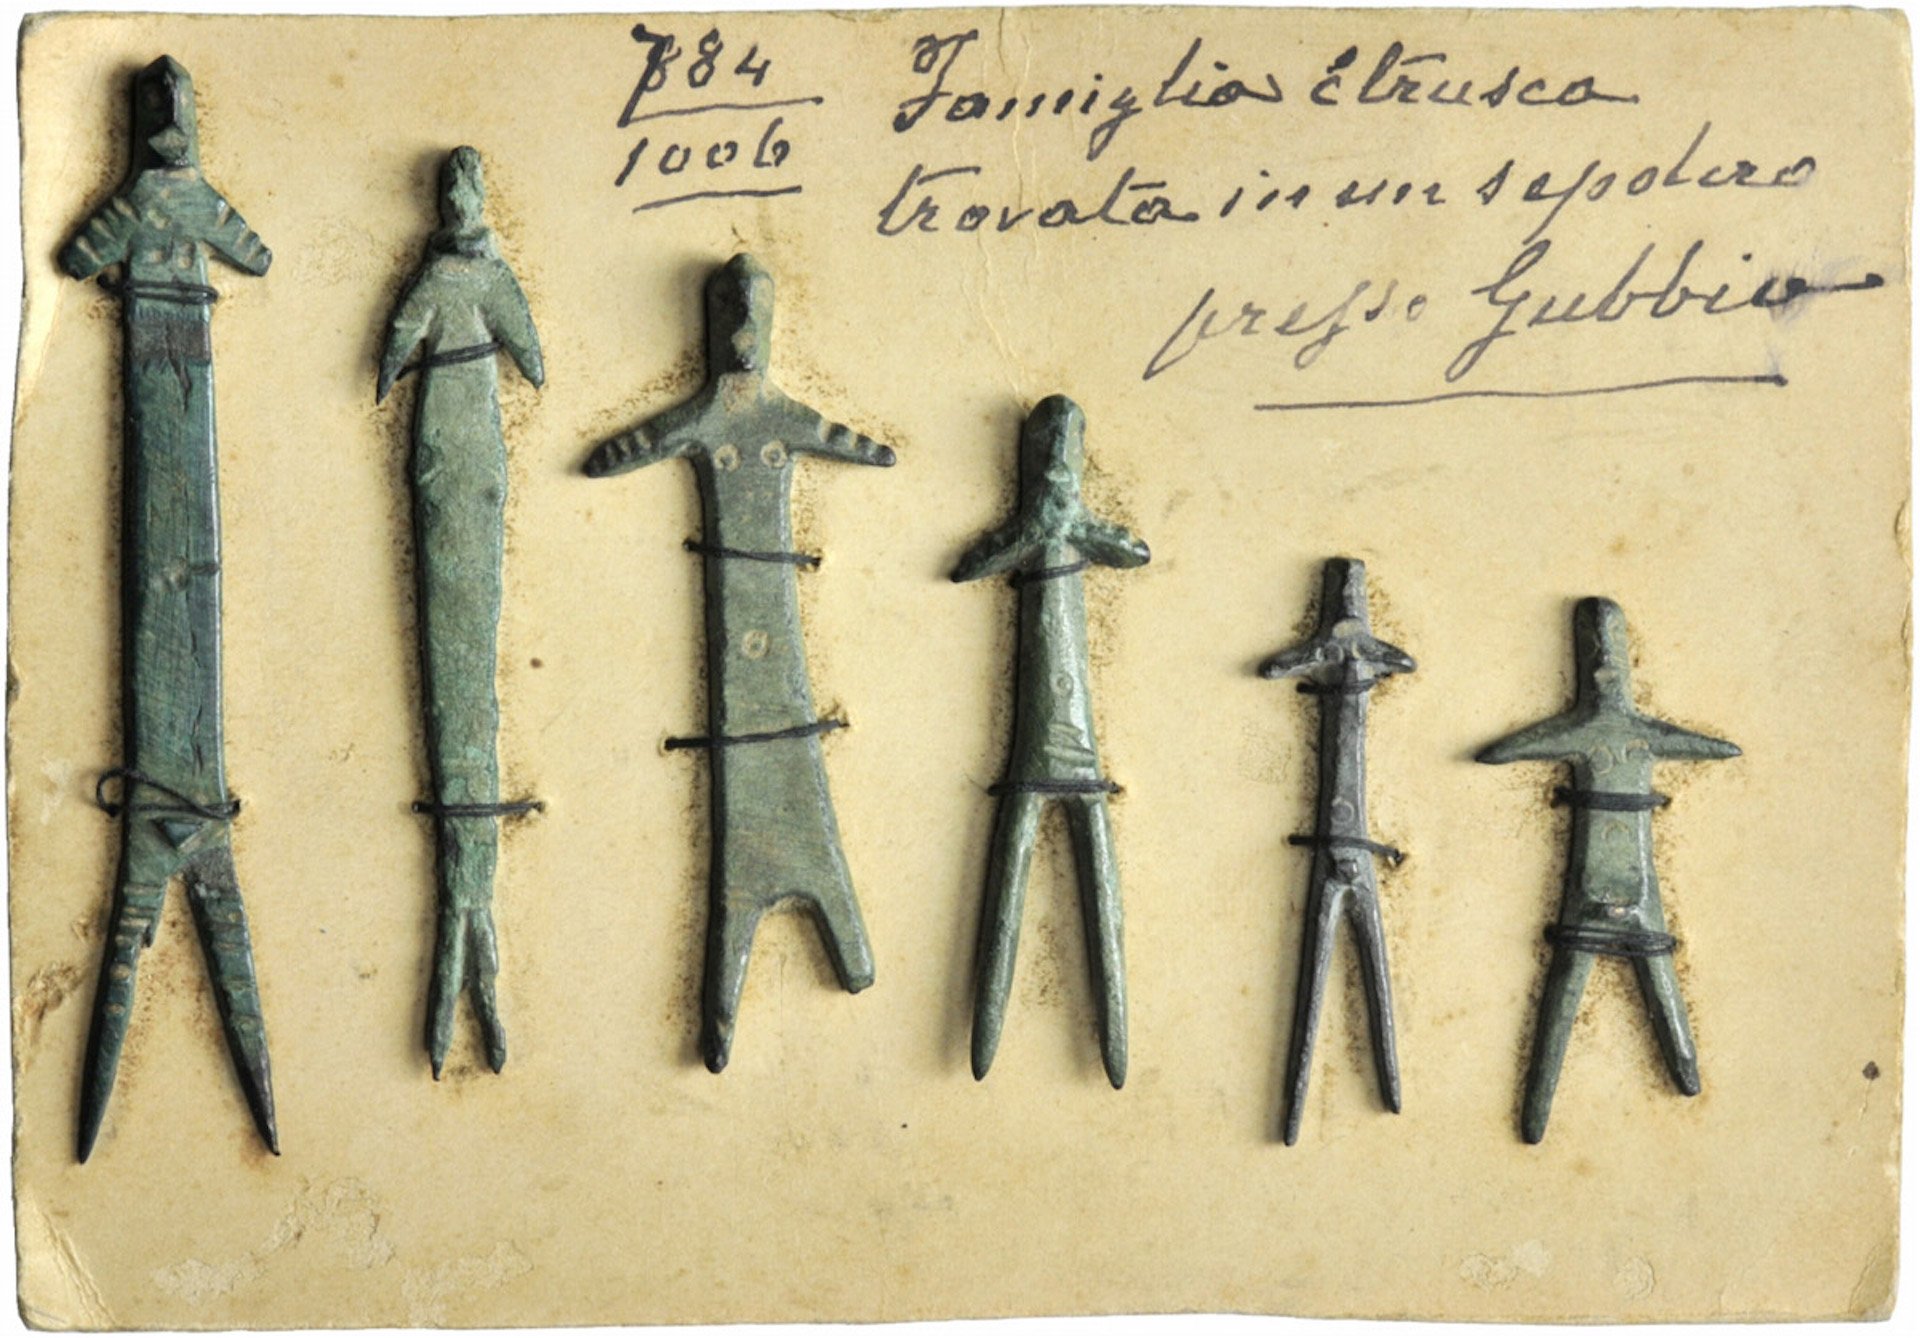 884
1006
Famiglia Etrusca
trovata in un sepolcro
presso Gubbio